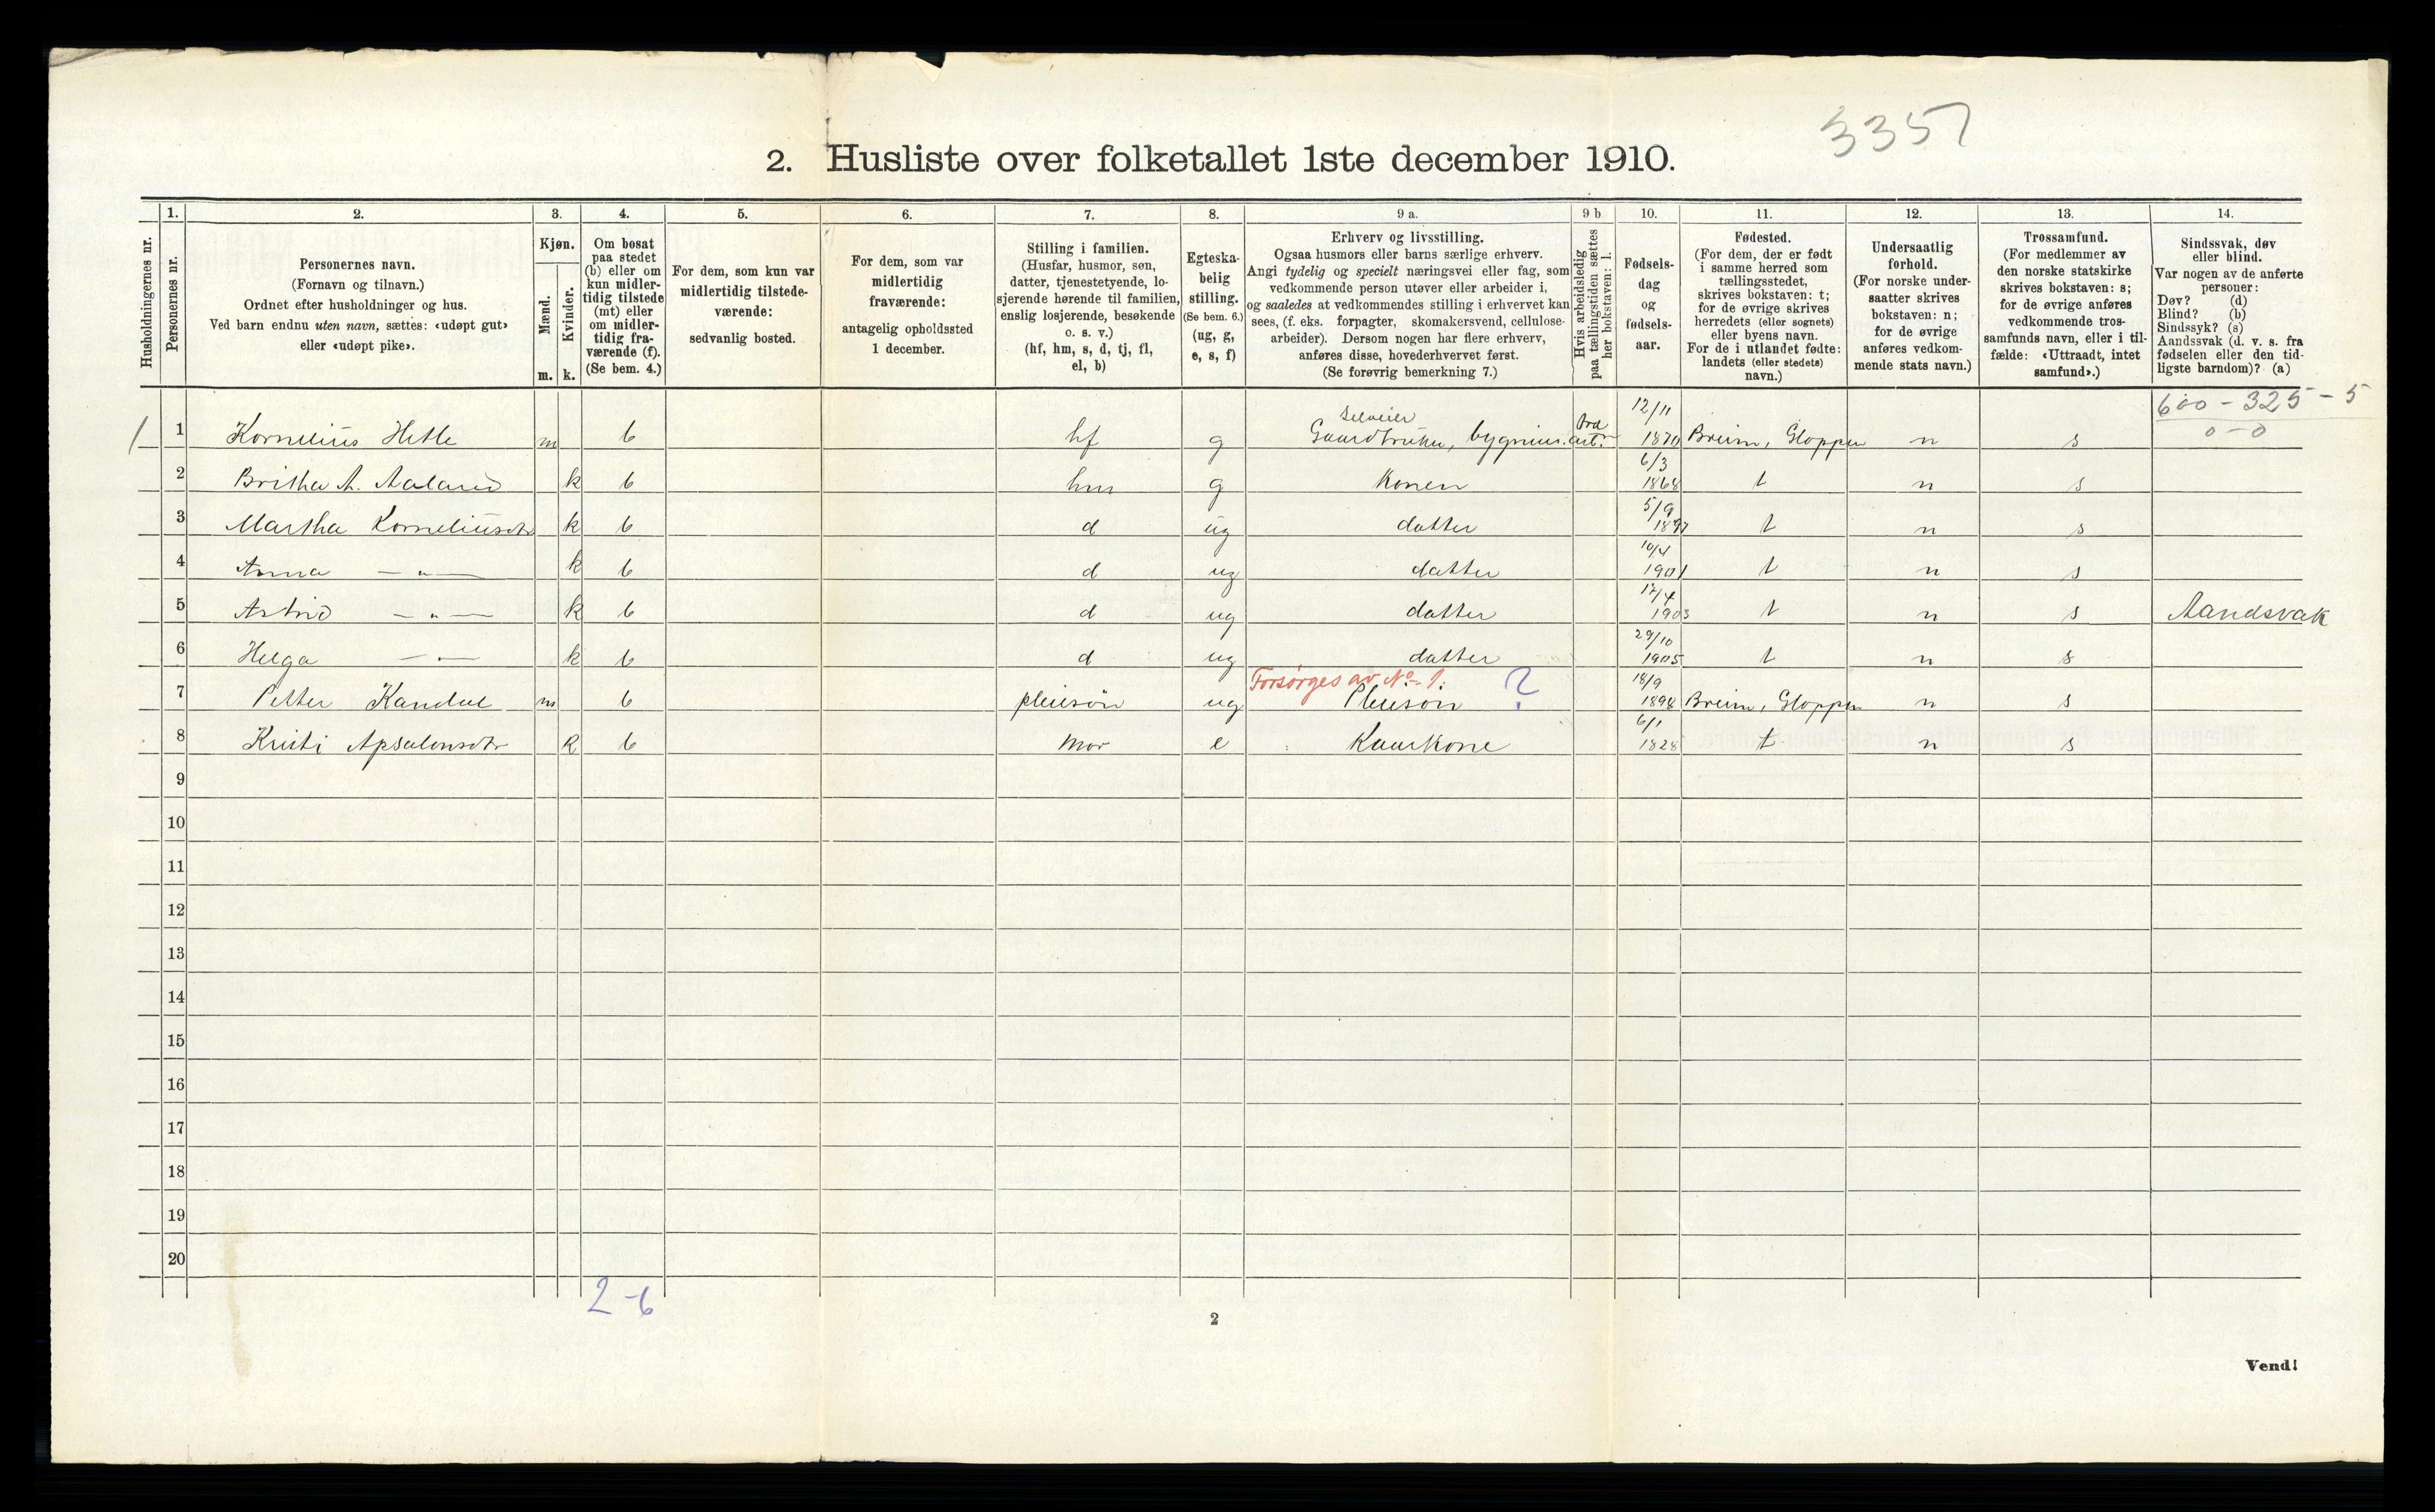 3357
2. Husliste over folketallet 1ste december 1910.
Husholdningernes nr.
1.
Personernes nr.
2.
Personernes navn.
(Fornavn og tilnavn.)
Ordnet efter husholdninger og hus.
Ved barn endnu uten navn, sættes: «udøpt gut»
eller «udøpt pike».
3.
Kjøn.
Mænd.
Kvinder.
m. k.
4.
Om bosat
paa stedet
(b) eller om
kun midler-
tidig tilstede
(mt) eller
om midler-
tidig fra-
værende (f).
(Se bem. 4.)
5.
For dem, som kun var
midlertidig tilstede-
værende:
sedvanlig bosted.
6.
For dem, som var
midlertidig
fraværende:
antagelig opholdssted
1 december.
7.
Stilling i familien.
(Husfar, husmor, søn,
datter, tjenestetyende, lo-
sjerende hørende til familien,
enslig losjerende, besøkende
o. s. v.)
(hf, hm, s, d, tj, fl,
el, b)
8.
Egteska-
belig
stilling.
(Se bem. 6.)
(ug, g,
e, s, f)
9 a.
Erhverv og livsstilling.
Ogsaa husmors eller barns særlige erhverv.
Angi tydelig og specielt næringsvei eller fag, som
vedkommende person utøver eller arbeider i,
og saaledes at vedkommendes stilling i erhvervet kan
sees, (f. eks. forpagter, skomakersvend, cellulose-
arbeider). Dersom nogen har flere erhverv,
anføres disse, hovederhvervet først.
(Se forøvrig bemerkning 7.)
9 b
Hvis arbeidsledig
paa tællingstiden sættes
her bokstaven: l.
10.
Fødsels-
dag
og
fødsels-
aar.
11.
Fødested.
(For dem, der er født
i samme herred som
tællingsstedet,
skrives bokstaven: t;
for de øvrige skrives
herredets (eller sognets)
eller byens navn.
For de i utlandet fødte:
landets (eller stedets)
navn.)
12.
Undersaatlig
forhold.
(For norske under-
saatter skrives
bokstaven: n;
for de øvrige
anføres vedkom-
mende stats navn.)
13.
Trossamfund.
(For medlemmer av
den norske statskirke
skrives bokstaven: s;
for de øvrige anføres
vedkommende tros-
samfunds navn, eller i til-
fælde: «Uttraadt, intet
samfund».)
14.
Sindssvak, døv
eller blind.
Var nogen av de anførte
personer:
Døv? (d)
Blind? (b)
Sindssyk? (s)
Aandssvak (d. v. s. fra
fødselen eller den tid-
ligste barndom)? (a)
600 - 325 - 5
0 - 0
Selveier 12/11
1 1 Kornelius Hetle m b hf g Gaardbruker, bygnins. arb. 1870 Breim, Gloppen n s
6/3
2 Britha A. Aaland k b hm g Konen 1868 t n s
5/9
3 Martha Korneliusdtr k b d ug datter 1897 t n s
10/4
4 Anna — " — k b d ug datter 1901 t n s
17/4
5 Astrid — " — k b d ug datter 1903 t n s Aandsvak
29/10
6 Helga — " — k b d ug datter 1905 t n s
Forsørges av No 1. ? 18/9
7 Petter Kandal m b pleiesøn ug Pleiesøn 1898 Breim, Gloppen n s
6/1
8 Kristi Apsalonsdtr k b Mor e Kaarkone 1828 t n s
9
10
11
12
13
14
15
16
17
18
19
20
2-6
2
Vend!